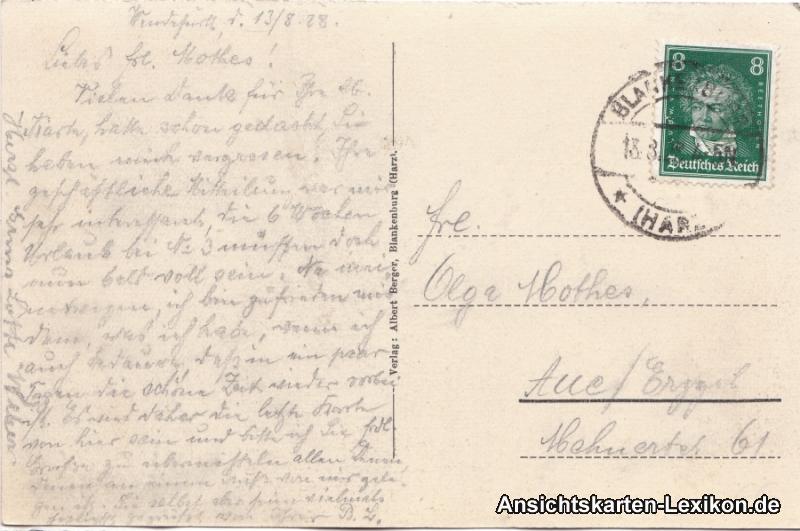 Wendefurth, d. 13/8. 28.
Liebes Frl. Mothes!
Vielen Dank für Ihre lb.
Karte, hatte schon gedacht, Sie
haben mich vergessen. Ihre
geschäftliche Mitteilung war mir
sehr interessant, die 6 Wochen
Urlaub bei No 3 müssen doch
nun bald voll sein. Na mei-
netwegen, ich bin zufrieden mit
dem, was ich habe, wenn ich
auch bedaure, daß in ein paar
Tagen die schöne Zeit wieder vorbei
ist. Es wird daher die letzte Karte
von hier sein und bitte ich Sie frdl.
Grüße zu übermitteln allen denen
Verlag: Albert Berger, Blankenburg (Harz).
8 8
Deutsches Reich
BLANKENBURG
13.8.
(HARZ)
Frl.
Olga Mothes,
Aue/Erzgeb
61
Ansichtskarten-Lexikon.de